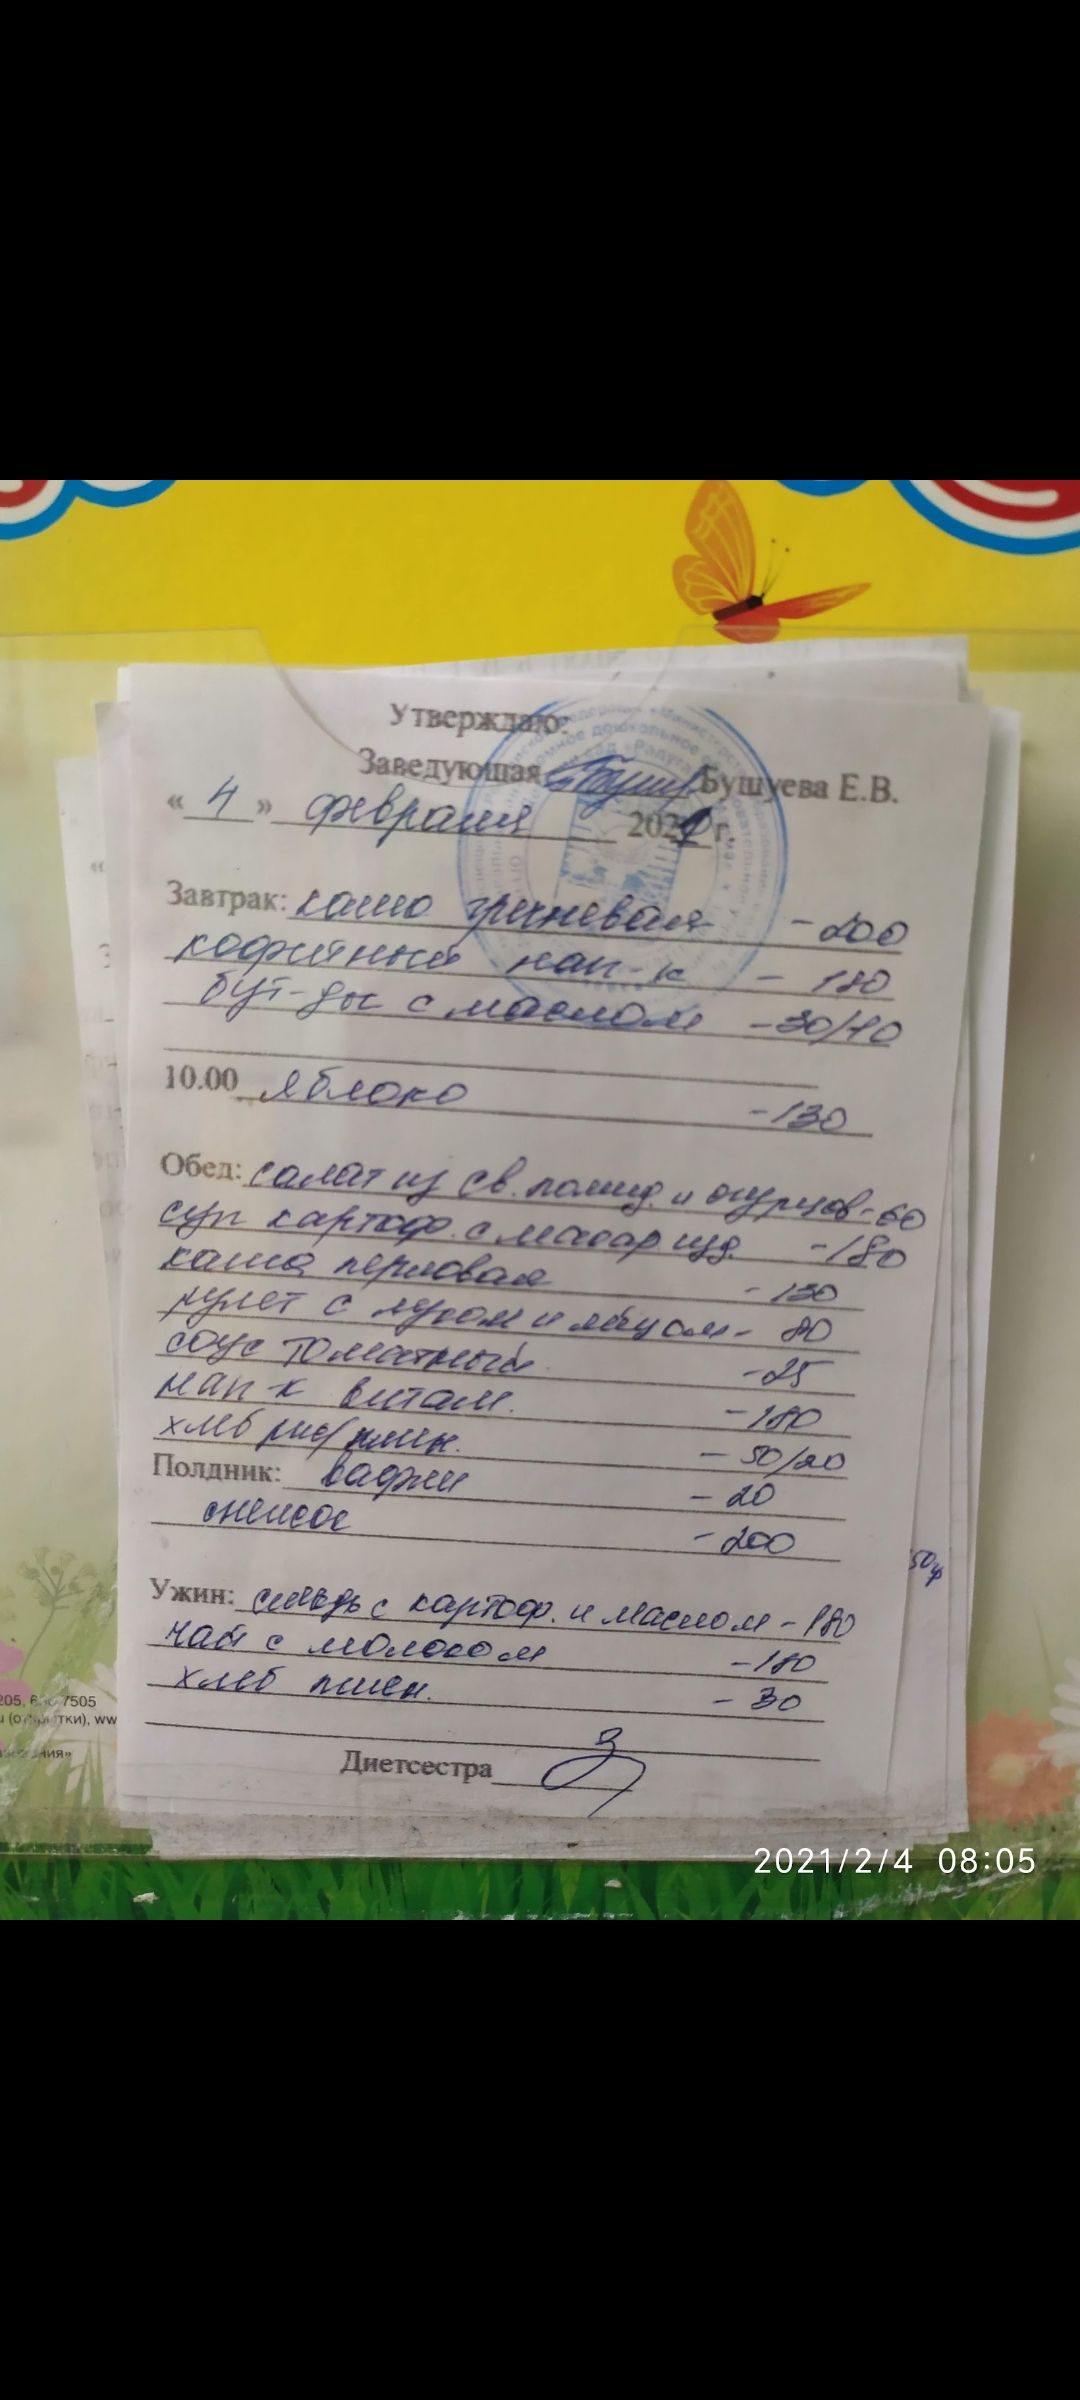 Утверждаю:
Заведующая Бушуева Е.В.
« 4 » февраля 2021 г.
Завтрак: каша гречневая - 200
кофейный нап-к - 180
бут-ды с маслом - 30/10
10.00 яблоко - 130
Обед: салат из св. помид. и огурцов - 60
суп картоф. с макар. изд. - 180
каша перловая - 130
рулет с луком и яйцом - 80
соус томатный - 25
нап-к витам. - 180
хлеб рж/пшен. - 50/20
Полдник: вафли - 20
снежок - 200
Ужин: сельдь с картоф. и маслом - 180
чай с молоком - 180
хлеб пшен. - 30
Диетсестра
2021/2/4 08:05